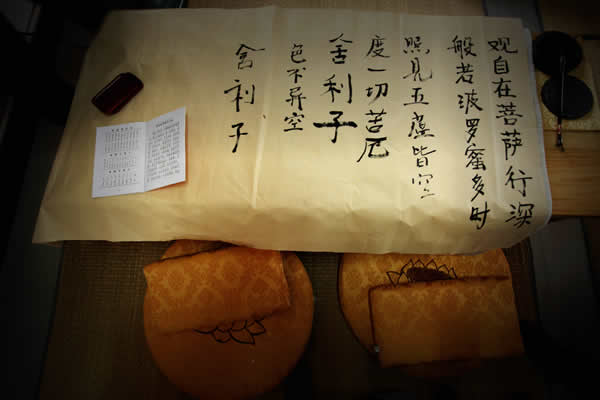 观自在菩萨行深
般若波罗蜜多时
照见五蕴皆空
度一切苦厄
舍利子
色不异空
舍利子